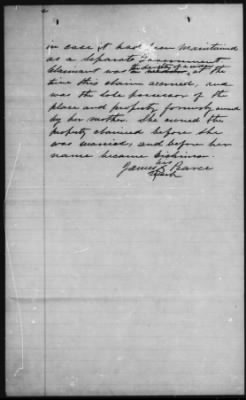 in case it had been maintained
as a separate Government
the widow of a
claimant was at the
time this claim accrued, and
was the sole possessor of the
place and property formerly owned
by her mother. She owned the
property claimed before she
was married, and before her
name became
his
James X Pearce
mark